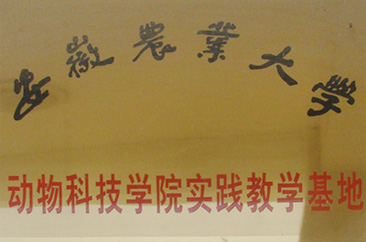 安徽農業大學
动物科技学院实践教学基地